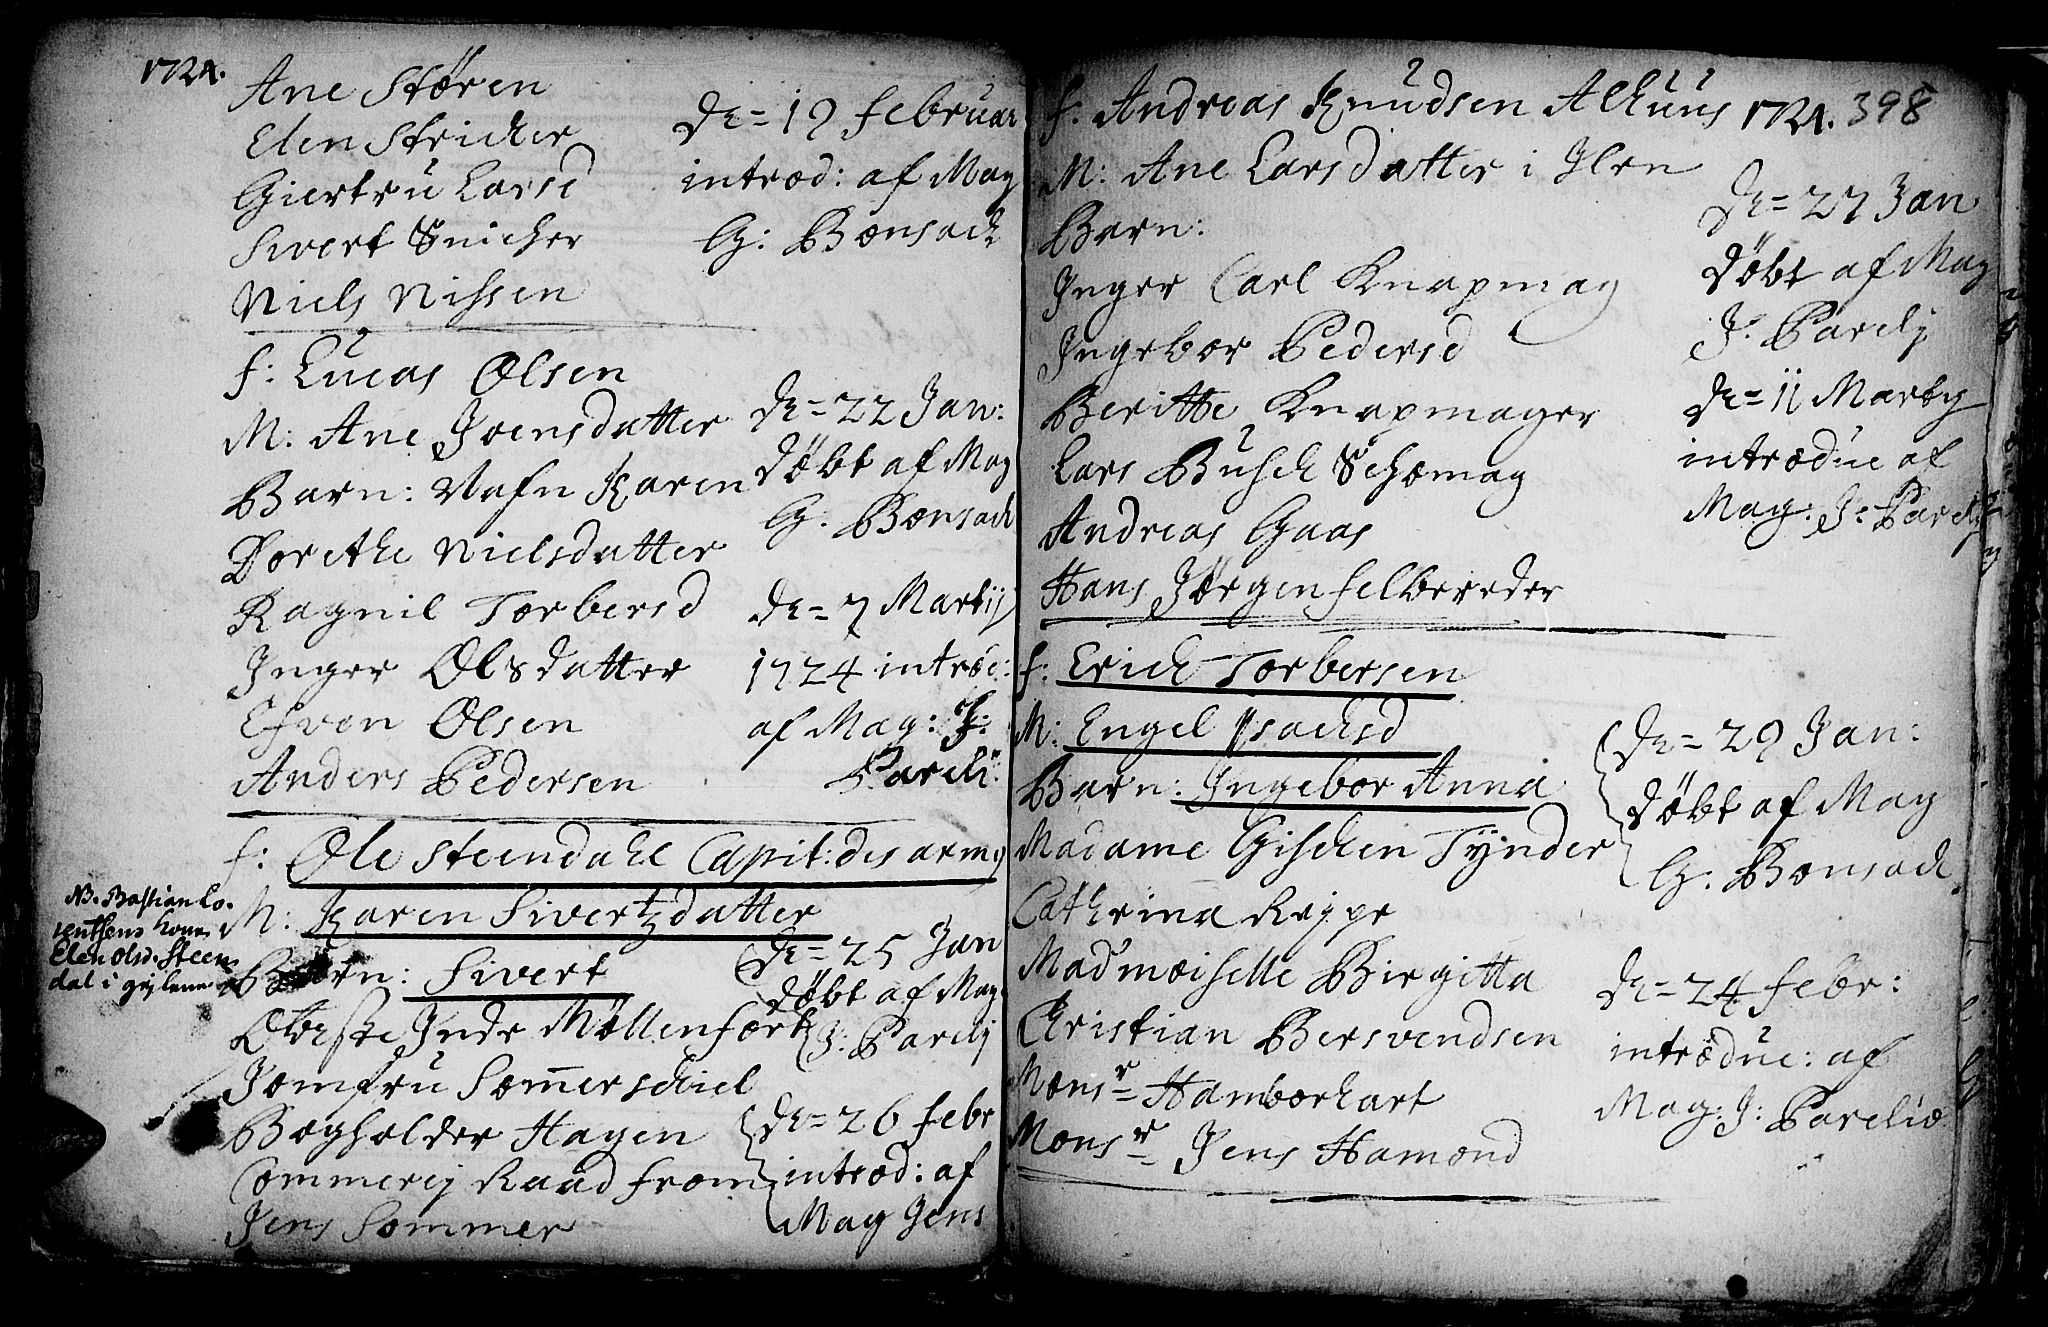 1724.
Ane Stören
Elen Stricker
Giertru Larsd
Sivert Snicher
Niels Nissen
De= 19 Februar
introd: af Mag
G: Bonsach
F: Lucas Olsen
M: Ane Joensdatter
Barn: Nafn Karen
Dorethe Nielsdatter
Ragnil Torbersd
Inger Olsdatter
Efven Olsen
Anders Pedersen
De= 22 Jan:
döbt af Mag
G. Bonsach
De= 7 Martij
1724 introd:
af Mag: J:
Pareli:
F: Ole Steendahl Capit: des arm
M: Karen Sivertzdatter
Barn: Sivert
Oberste Indr Möllenfort
Jomfru Somerschiel
Bogholder Hagen
Commercij Raad From
Jens Sommer
NB. Bastian Lo-
rentsens kone
Elen Olsd. Steen
dal i
De= 25 Jan
döbt af Mag
J: Parelij
De= 26 Febr
introd: af
Mag Jens
F: Andreas Knudsen Alhuus 1724. 398
M: Ane Larsdatter i Ilen
Barn:
Inger Carl Knapmag
Ingebor Pedersd
Beritte Knapmager
Lars Busch Schomag
Andreas Gaas
Hans Jörgen Felbereder
De= 27 Jan
döbt af Mag
J. Parelij
De= 11 Martij
introduc af
Mag: J: Parelij
F: Erich Torbersen
M: Engel Isachsd
Barn: Ingebor Anna
Madame Gischen Tÿnder
Catherina Reppe
Madmoiselle Birgitta
Christian Bersvendsen
Monsr Hamborhart
Monsr Jens Hamond
De= 29 Jan:
döbt af Mag
G: Bonsach
De= 24 Febr:
introduc: af
Mag: J: Parelio